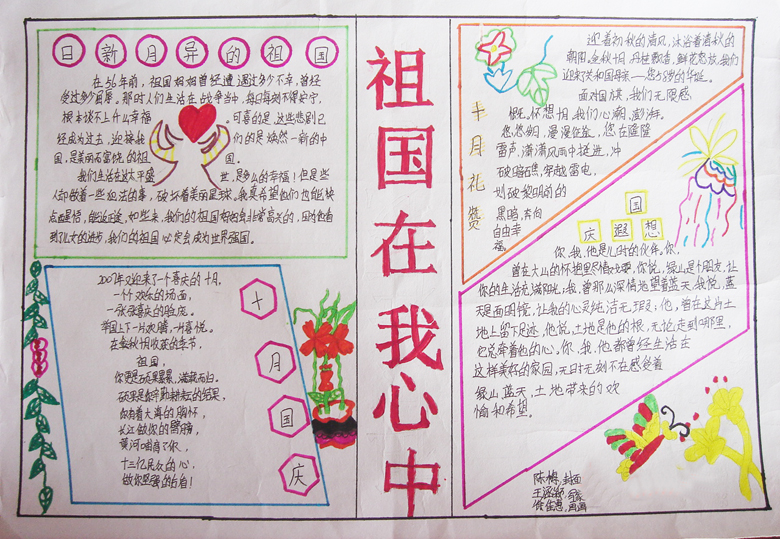 日新月异的祖国
在56年前，祖国妈妈曾经遭遇过多少不幸，曾经
受过多少屈辱。那时人们生活在战争当中，每日每刻不得安宁，
根本谈不上什么幸福
可喜的是，这些悲剧已
经成为过去，迎接我
们的是焕然一新的中
国，是美丽而富饶的祖
国。
我们生活在这太平盛
世，是多么的幸福！但是些
人却做着一些
的事，破坏着美丽星球。我真希望他们也能快
点
如些来，我们的祖国
会非常高兴的，因为他看
到了儿女的进步，我们的祖国
定会成为世界强国。
2007年又迎来了一个喜庆的十月。
一个欢乐的场面，
一张张喜庆的脸庞。
举国上下一片欢腾，一片喜悦。
在每秋相收获的季节，
祖国，
你更是硕果累累，满载而归。
硕果是你辛勤耕耘的结果，
你有着大海的胸怀，
长江做你的臂膀，
黄河唱着了你，
十三亿民众的心，
做你坚强的后盾！
十月国庆
祖国在我心中
十月礼赞
迎着初秋的清风，沐浴着清秋的
朝阳。金秋十月，丹桂飘香，鲜花怒放，我们
迎来了共和国母亲——您58岁的华诞。
面对国旗，我们无限感
慨。怀想十月，我们心潮澎湃。
悠悠岁月，漫漫征途，您在隆隆
雷声，潇潇风雨中挺进，冲
破暗礁，穿越雷电，
划破黎明前的
黑暗，去向
自由幸
福。
国庆遐想
你、我、他是儿时的伙伴。你、
曾在大山的怀抱里尽情欢耍，你说，绿山是个朋友，让
你的生活充满阳光；我，曾那么深情地望着蓝天，我说，蓝
天是面明镜，让我的心灵纯洁无瑕；他，曾在这片土
地上留下足迹，他说，土地是他的根，无论走到哪里，
它总牵着他的心。你、我、他都曾经生活在
这样美好的家园，无时无刻不在感受着
绿山、蓝天、土地带来的欢
愉和希望。